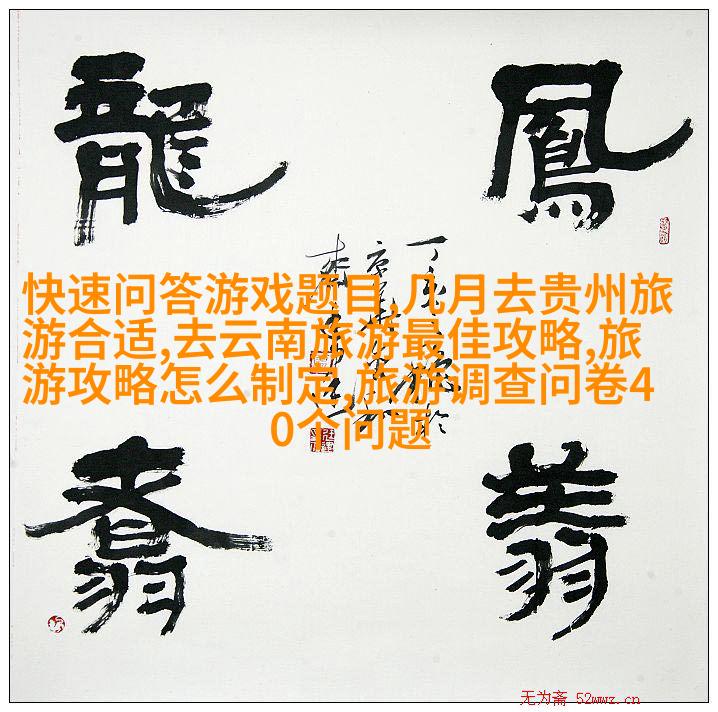 龍 鳳
快速问答游戏题目,几月去贵州旅
游合适,去云南旅游最佳攻略,旅
游攻略怎么制定,旅游调查问卷4
0个问题
翥 翔
无为斋 52wwz.cn